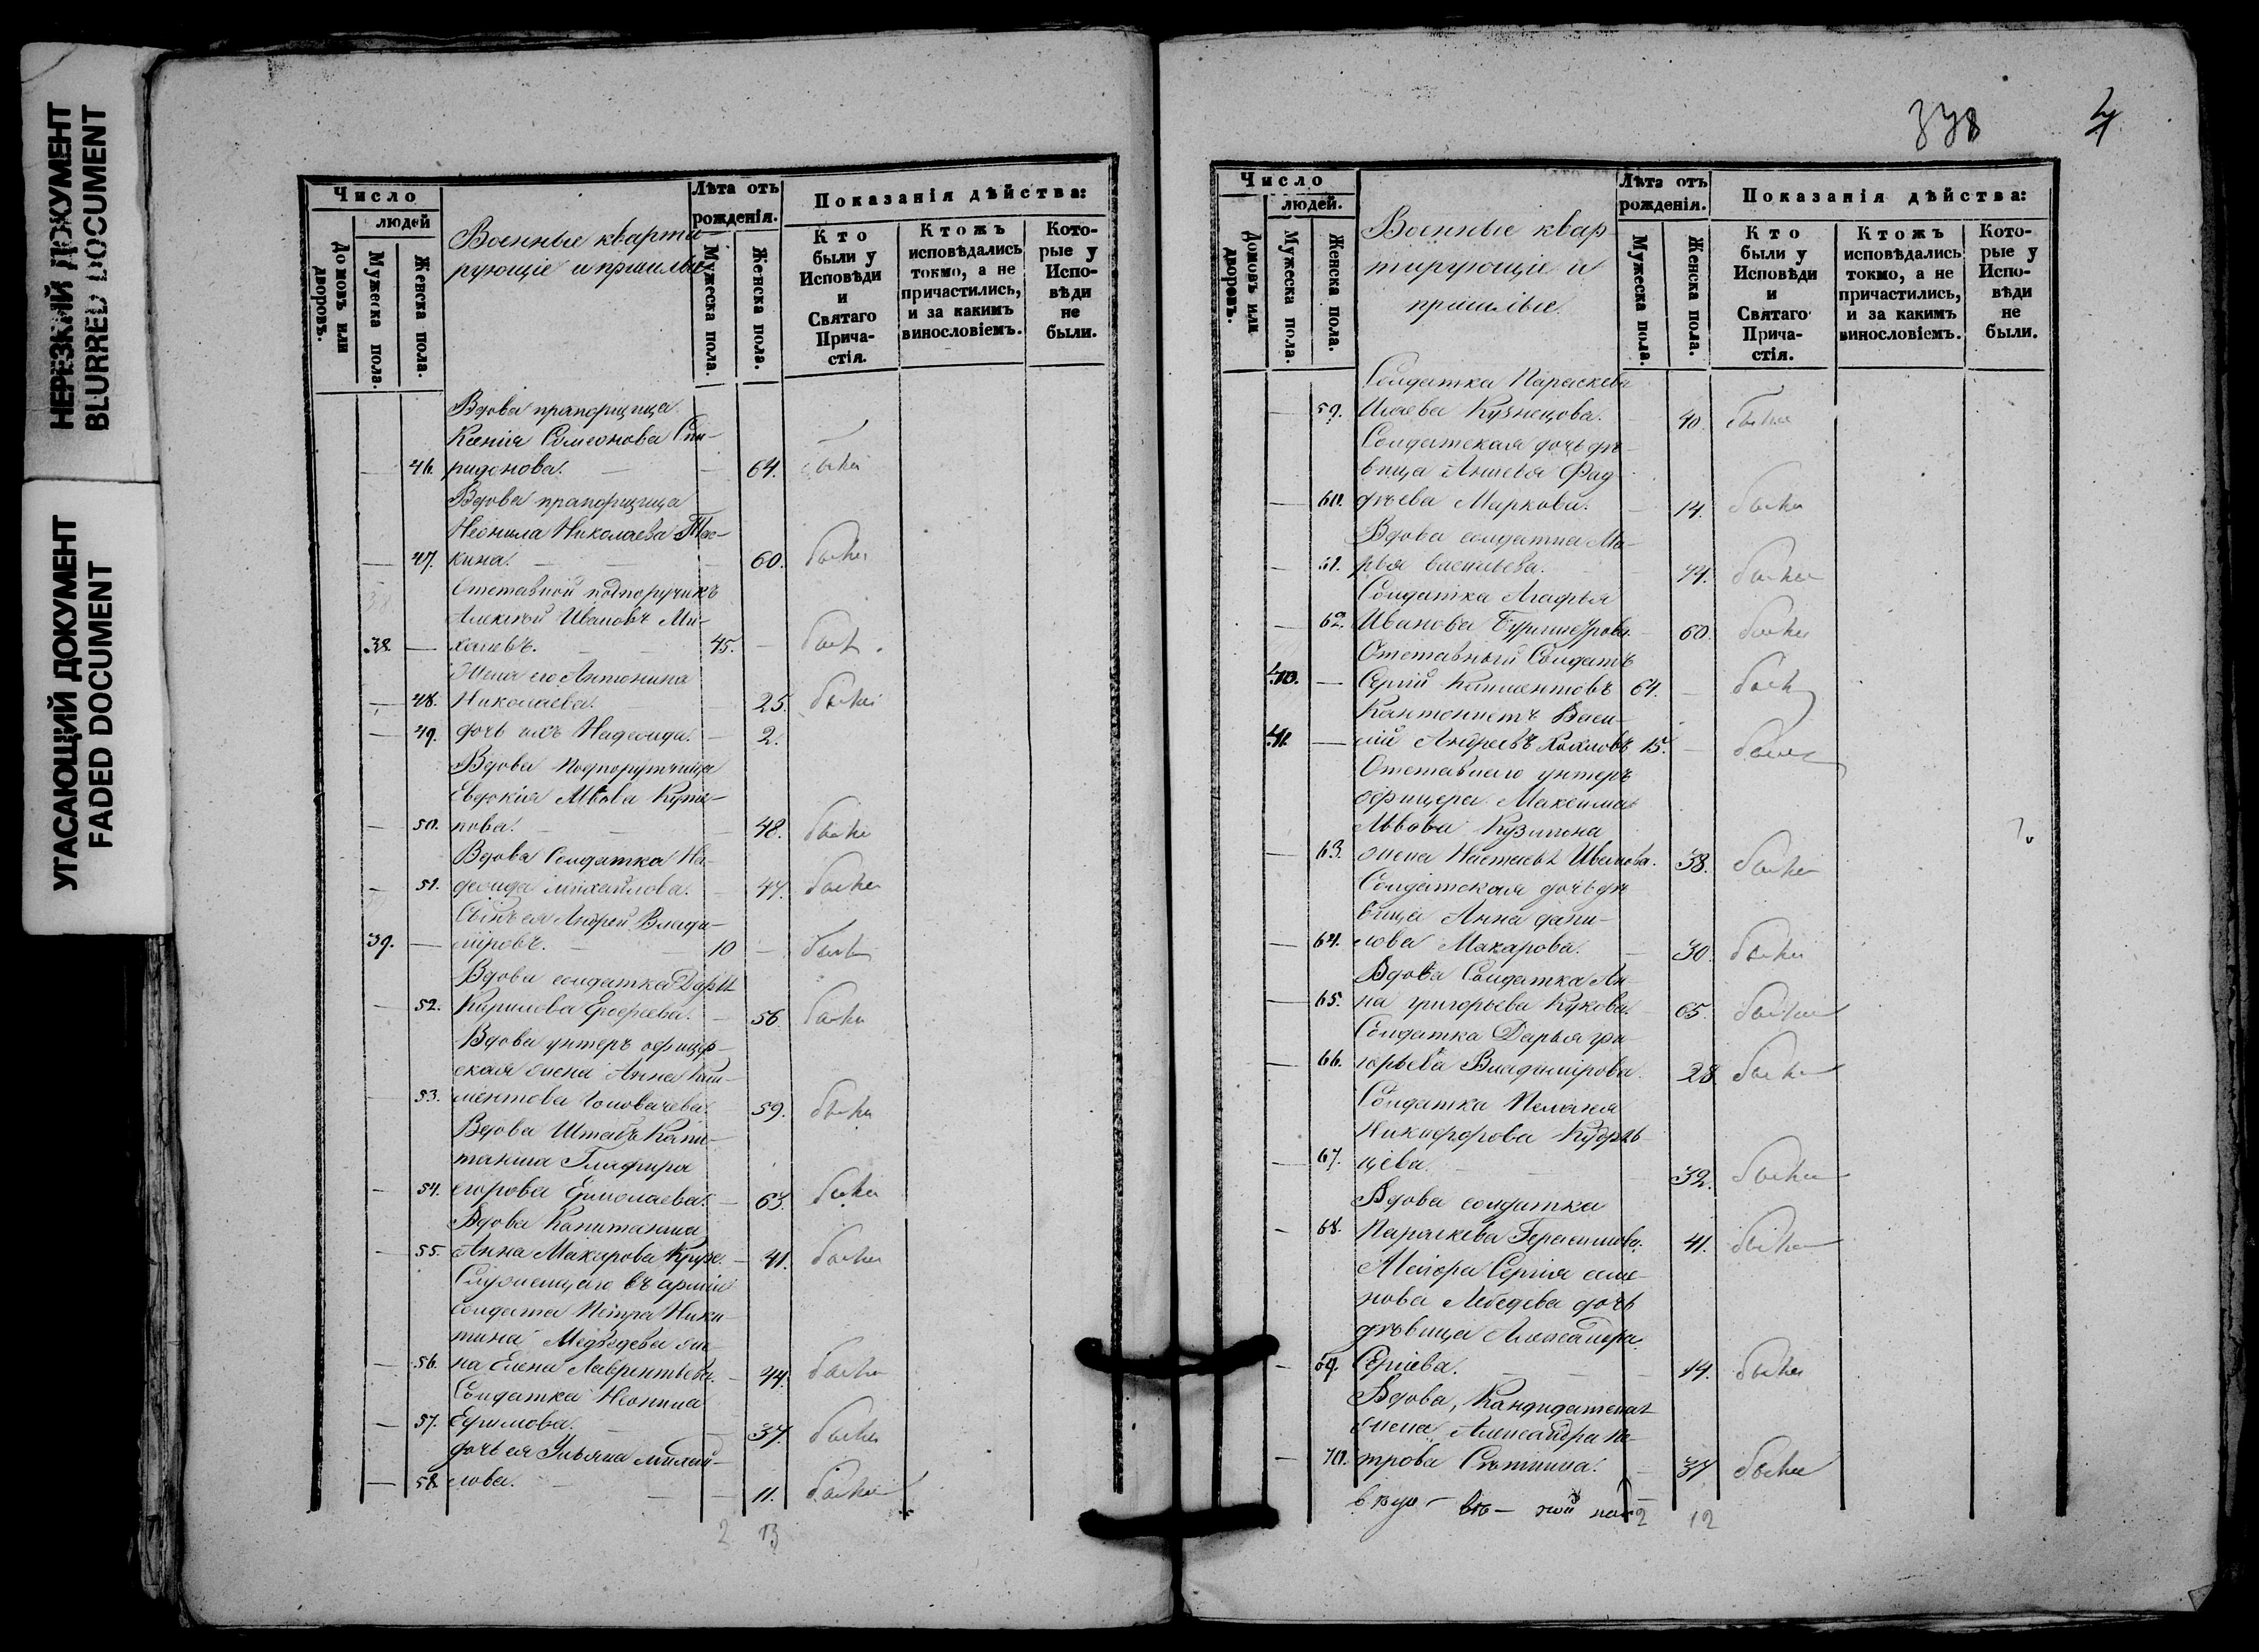 НЕРЕЗКИЙ ДОКУМЕНТ
BLURRED DOCUMENT
УГАСАЮЩИЙ ДОКУМЕНТ
FADED DOCUMENT
Число
людей
Домовъ или дворовъ.
Мужеска пола.
Женска пола.
Военные кварти-
рующіе и пришлые
Лѣта отъ
рожденія.
Мужеска пола.
Женска пола.
Показанія дѣйства:
Кто
были у
Исповѣди
и
Святаго
Прича-
стія.
Ктожъ
исповѣдались
токмо, а не
причастились,
и за какимъ
винословіемъ.
Кото-
рые у
Испо-
вѣди
не
были.
Вдова прапорщица
Ксенія Симеонова Спи-
46. ридонова. 64. были
Вдова прапорщица
Неонила Николаева
47. кина. 60. были
Отставной подпоручикъ
Алексѣй Ивановъ Ми-
38. халевъ. 45. былъ
Жена его Антонина
48. Николаева. 25. были
49. дочь ихъ Надежда. 2.
Вдова подпорутчица
Евдокія Львова
50. кова. 48. были
Вдова Солдатка На-
51. дежда Михайлова. 47. были
Сынъ ея Андрей Влади-
39. міровъ. 10 былъ
Вдова солдатка Дарья
52. Кирилова Ерофеева. 56 были
Вдова унтеръ офицер-
ская жена Анна Кли-
53. ментова Головачева. 59. были
Вдова Штабъ Капи-
танша Глафира
54. Егорова Ермолаева. 63. были
Вдова Капитанша
55. Анна Макарова 41. были
Служащаго въ арміи
солдата Петра Ники-
тина Медведева же-
56. на Елена Лаврентьева. 44. были
Солдатка Неонила
57. Ефимова. 37. были
дочь ея Ульяна Михай-
58. лова. 11. были
2 13
378
4
Число
людей.
Домовъ или дворовъ.
Мужеска пола.
Женска пола.
Военные квар-
тирующіе и
пришлые.
Лѣта отъ
рожденія.
Мужеска пола.
Женска пола.
Показанія дѣйства:
Кто
были у
Исповѣди
и
Святаго
Прича-
стія.
Ктожъ
исповѣдались
токмо, а не
причастились,
и за какимъ
винословіемъ.
Кото-
рые у
Испо-
вѣди
не
были.
Солдатка Параскева
59. Исаева Кузнецова. 40. были
Солдатская дочь дѣ-
вица Фад-
60. дѣева Маркова. 14. были
Вдова солдатка Ма-
61. рья 44. были
Солдатка Агафья
62. Иванова 60. были
Отставный Солдатъ
40. Сергій Климентовъ 64. былъ
Кантонистъ Васи-
41. лій Андреевъ 15. былъ
Отставнаго унтеръ
офицера Максима
Львова Кузмина
63. жена Настасья Иванова. 38. были
Солдатская дочь дѣ-
вица Анна Дани-
64. лова Макарова. 30. были
Вдова Солдатка Ан-
65. на Григорьева Жукова. 65. были
Солдатка Дарья Гри-
66. горьева Владимірова. 28. были
Солдатка Пелагея
Никифорова Кудряв-
67. цева. 32. были
Вдова солдатка
68. Параскева Герасимова. 41. были
Маіора Сергія Семе-
нова Лебедева дочь
дѣвица Александра
69. Сергіева. 14. были
Вдова, Кандидатская
жена Александра Пе-
70. трова Сѣтнина. 37 были
2 12